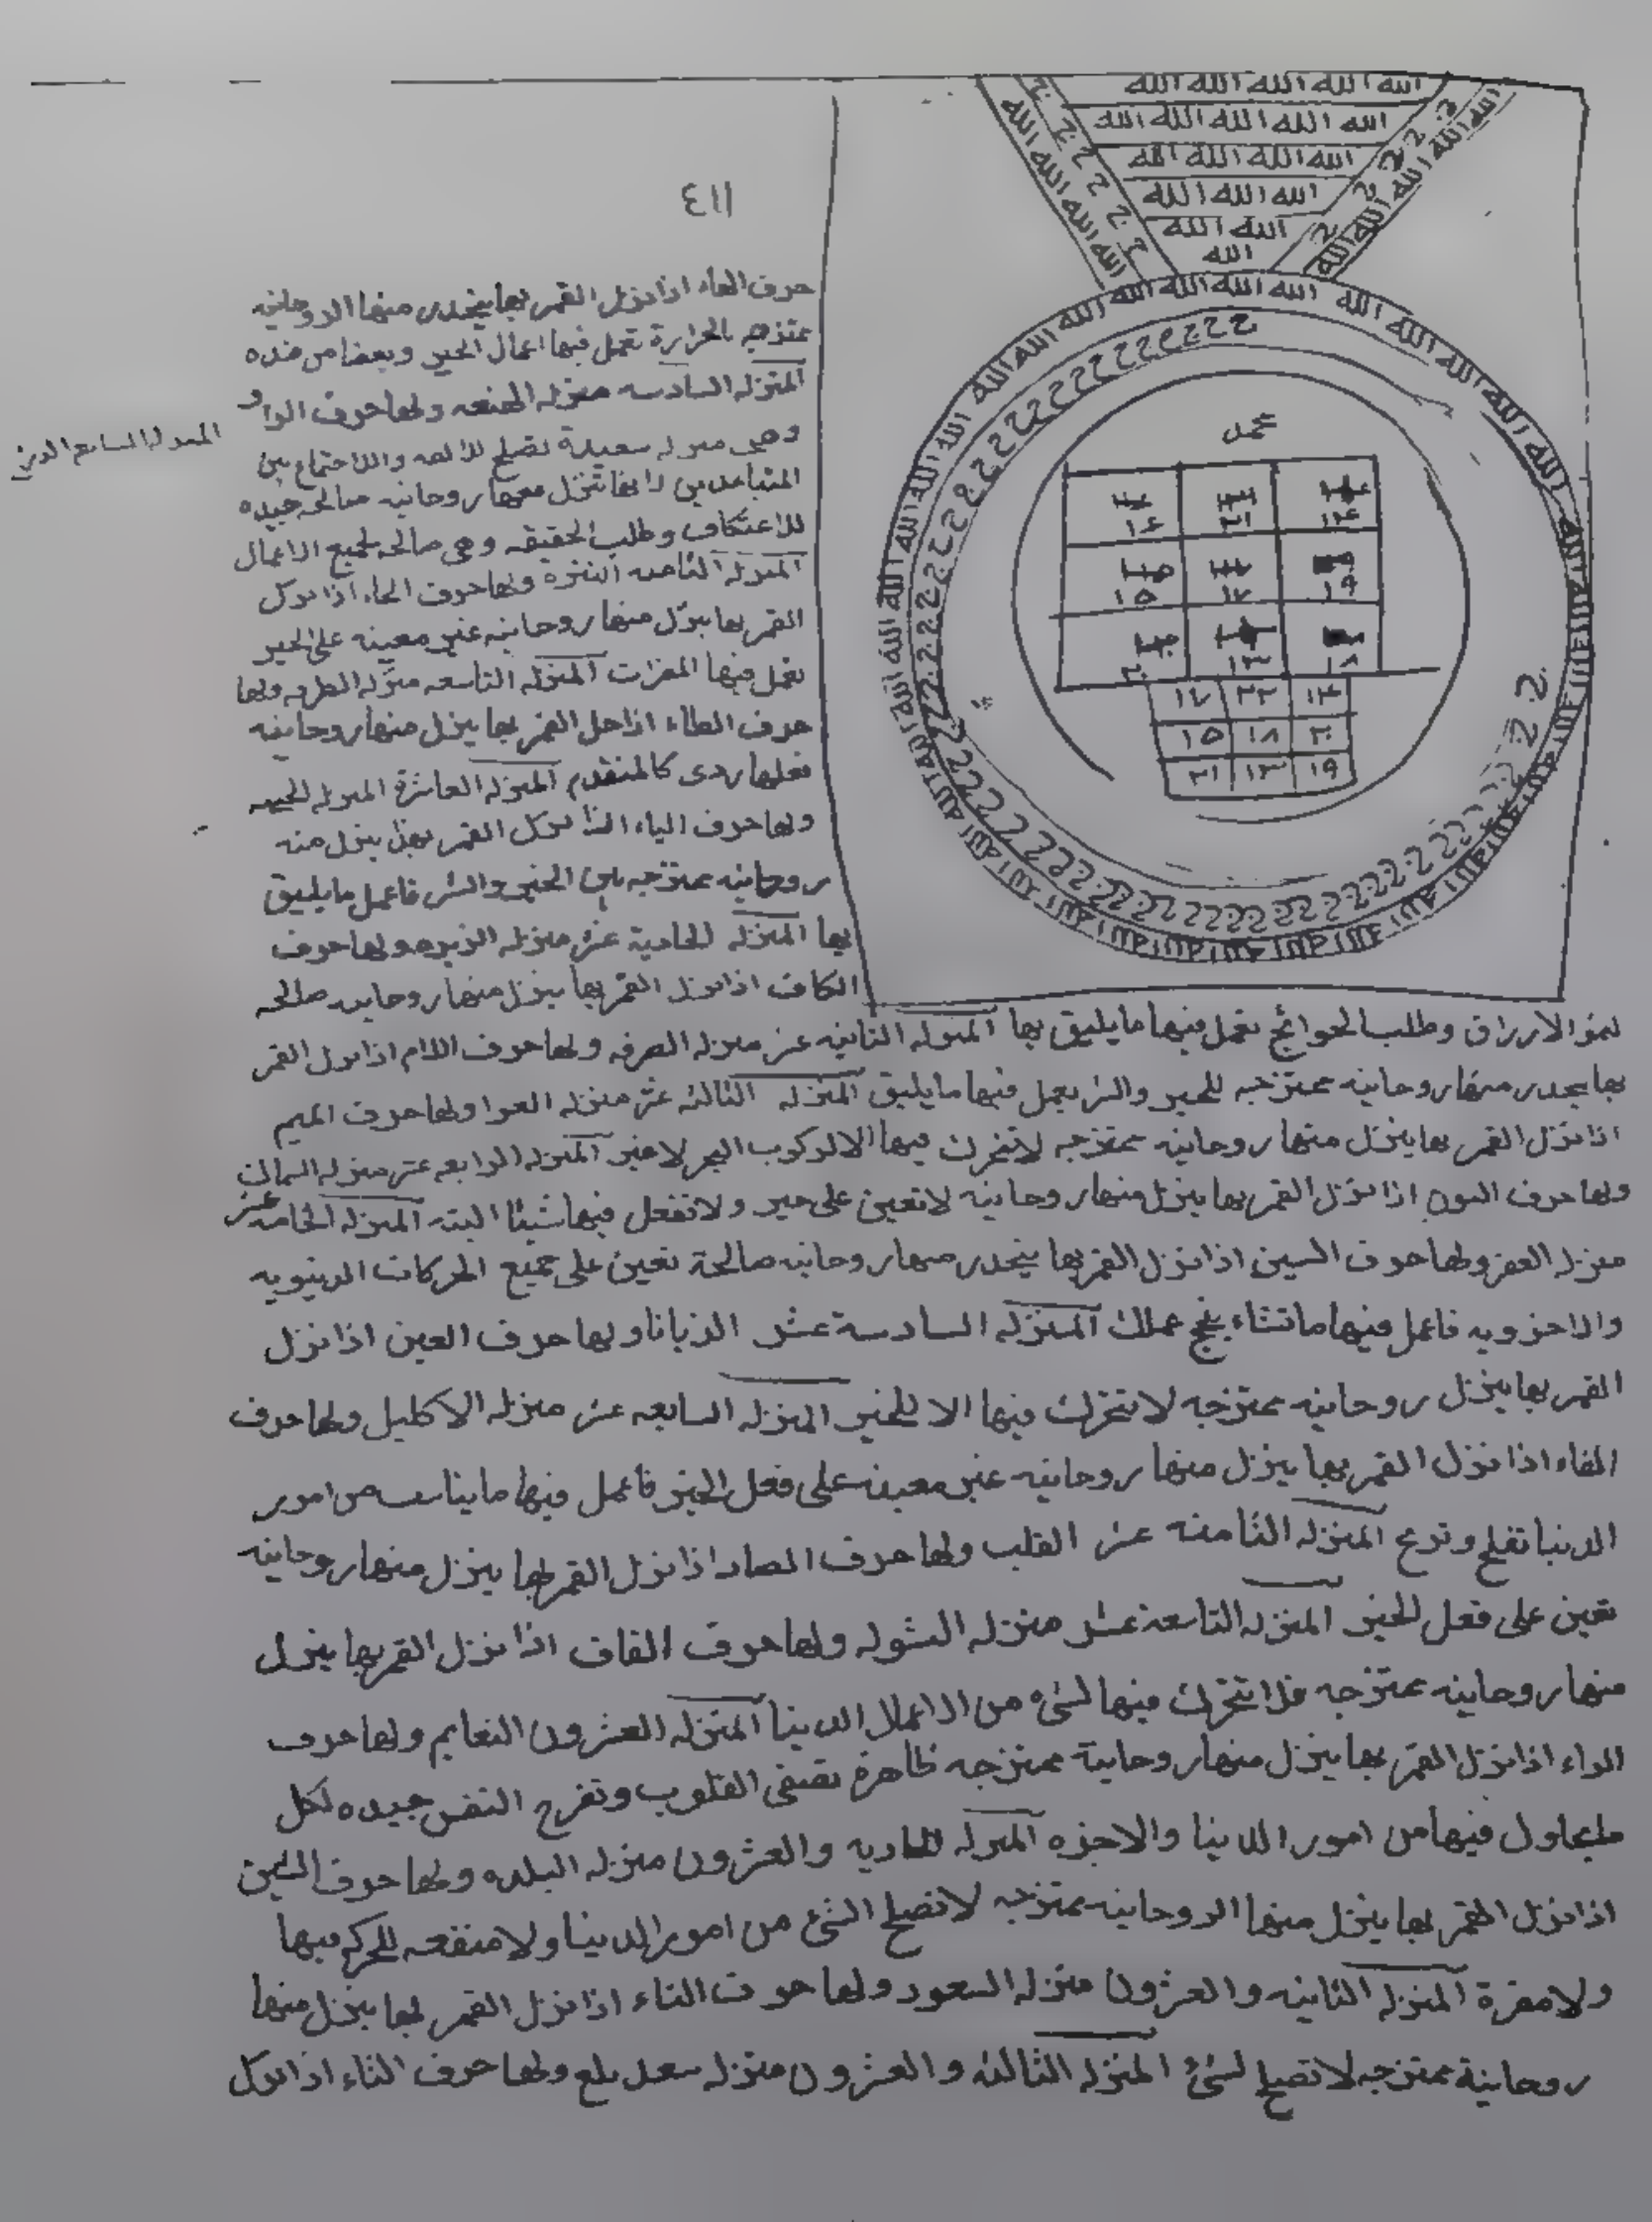 الله الله الله الله الله
الله الله الله الله الله
الله الله الله الله
الله الله الله
الله الله
الله
محمد
١٦ ٢١ ١٤
١٥ ١٧ ١٩
٢٠ ١٣ ١٨
١٧ ٢٢ ١٤
١٥ ١٨ ٢٠
٢١ ١٣ ١٩
٤١١
حرف الهاء اذا نزل القمر بها ينحدر منها الروحانيه
ممتزجه بالحرارة تعمل فيها اعمال الخير وبعضا من ضده
المنزله السادسه منزله الهنعه ولها حرف الواو
وهي منزله سعيدة تصلح للالفه والاجتماع بين
المتباعدين لانها تنزل معها روحانيه صالحه جيده
للاعتكاف وطلب الحقيقه وهي صالحه لجميع الاعمال
المنزله السابع الذي
المنزله الثامنه النثرة ولها حرف الحاء اذا نزل
القمر بها ينزل منها روحانيه غير معينه على الخير
تعمل فيها المضرات المنزله التاسعه منزله الطرفه ولها
حرف الطاء اذا حل القمر بها ينزل منها روحانيه
فعلها ردى كالمتقدم المنزله العاشرة المنزله الجبهه
ولها حرف الياء اذا نزل القمر بها ينزل منه
روحانيه ممتزجه بين الخير والشر فاعمل ما يليق
بها المنزله الحادية عشر منزله الزبره ولها حرف
الكاف اذا نزل القمر بها ينزل منها روحانيه صالحه
لنمو الارزاق وطلب الحوائج تعمل فيها ما يليق بها المنزله الثانيه عشر منزله الصرفه ولها حرف اللام اذا نزل القمر
بها ينحدر منها روحانيه ممتزجه للخير والشر يعمل فيها ما يليق المنزله الثالثه عشر منزله العوا ولها حرف الميم
اذا نزل القمر بها ينزل منها روحانيه ممتزجه لا تتحرك فيها الا لركوب البحر لا غير المنزله الرابعه عشر منزله السماك
ولها حرف النون اذا نزل القمر بها ينزل منها روحانيه لا تعين على خير ولا تفعل فيها شيئا البته المنزله الخامسه عشر
منزله الغفر ولها حرف السين اذا نزل القمر بها ينحدر منها روحانيه صالحة تعين على جميع الحركات الدنيويه
والاخرويه فاعمل فيها ما تشاء ينجح عملك المنزله السادسة عشر الزبانا ولها حرف العين اذا نزل
القمر بها ينزل روحانيه ممتزجه لا تتحرك فيها الا للخير المنزله السابعه عشر منزله الاكليل ولها حرف
الفاء اذا نزل القمر بها ينزل منها روحانيه غير معينه على فعل الخير فاعمل فيها ما يناسب من امور
الدنيا تفلح وتربح المنزله الثامنه عشر القلب ولها حرف الصاد اذا نزل القمر بها ينزل منها روحانيه
تعين على فعل الخير المنزله التاسعة عشر منزله الشوله ولها حرف القاف اذا نزل القمر بها ينزل
منها روحانيه ممتزجه فلا تتحرك فيها لشىء من الاعمال الدنيا المنزله العشرون النعايم ولها حرف
الراء اذا نزل القمر بها ينزل منها روحانية ممتزجه ظاهرة تصفى القلوب وتفرح النفس جيده لكل
ما يحاول فيها من امور الدنيا والاخره المنزله الحاديه والعشرون منزله البلده ولها حرف الشين
اذا نزل القمر بها ينزل منها الروحانيه ممتزجه لا تصلح الشئ من امور الدنيا ولا منفعه للحركه فيها
ولا مضرة المنزله الثانيه والعشرون منزله السعود ولها حرف التاء اذا نزل القمر بها ينزل منها
روحانية ممتزجه لا تصلح لشئ المنزله الثالثه والعشرون منزله سعد بلع ولها حرف الثاء اذا نزل